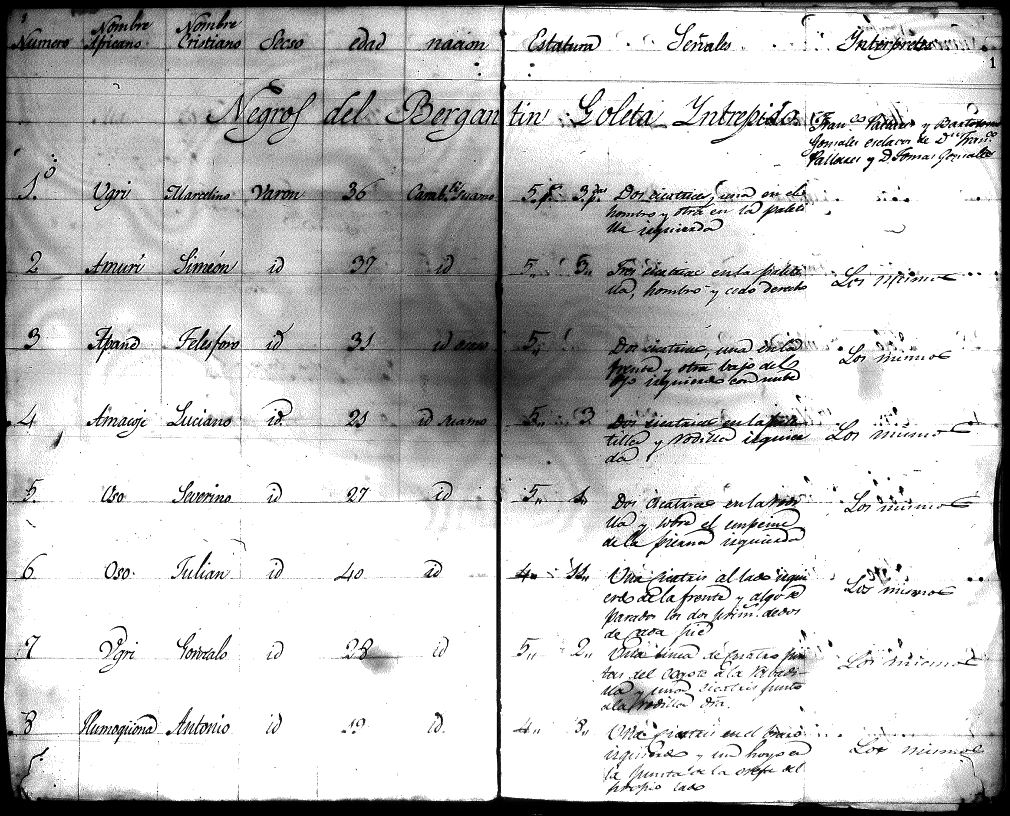 Numero Nombre Africano Nombre Cristiano Secso edad nacion Estatura Señales Interpretes
1
Negros del Bergantin Goleta Intrepido
Franco Pallares y Bartolome
Gonsales esclavos de Dn Franco
Pallares y D Tomas Gonsales
1º Ugri Marcelino Varon 36 5 p. 3 Dos cicatrices, una en el
hombro y otra en la paleti
lla izquierda
2 Amuri Simeón id 37 id 5,, 3,, Tres cicatrices en la paleti
lla, hombro y codo derecho
Los mismos
3 Apand Telesforo id 31 id 5,, Dos cicatrices, una en la
frente y otra bajo del
ojo izquierdo
Los mismos
4 Amacoje Luciano id 21 id 5,, 3 Dos cicatrices en la
y rodilla izquier
da
Los mismos
5. Oso Severino id 27 id 5,, 1,, Dos cicatrices en la
lla y sobre el empeine
de la pierna izquierda
Los mismos
6 Oso Julian id 40 id 4,, 11,, Una cicatriz al lado izqui
erdo de la frente y algo se
parados los dos prim. dedos
de cada pie
Los mismos
7 Ugri Gonzalo id 28 id 5,, 2,, Una linea de cuatro pun
tas del a la
lla y una cicatriz junto
a la rodilla dra.
Los mismos
8 Antonio id 19 id 4,, 8,, Una cicatriz en el brazo
izquierdo y un hoyo en
la punta de la oreja del
propio lado
Los mismos